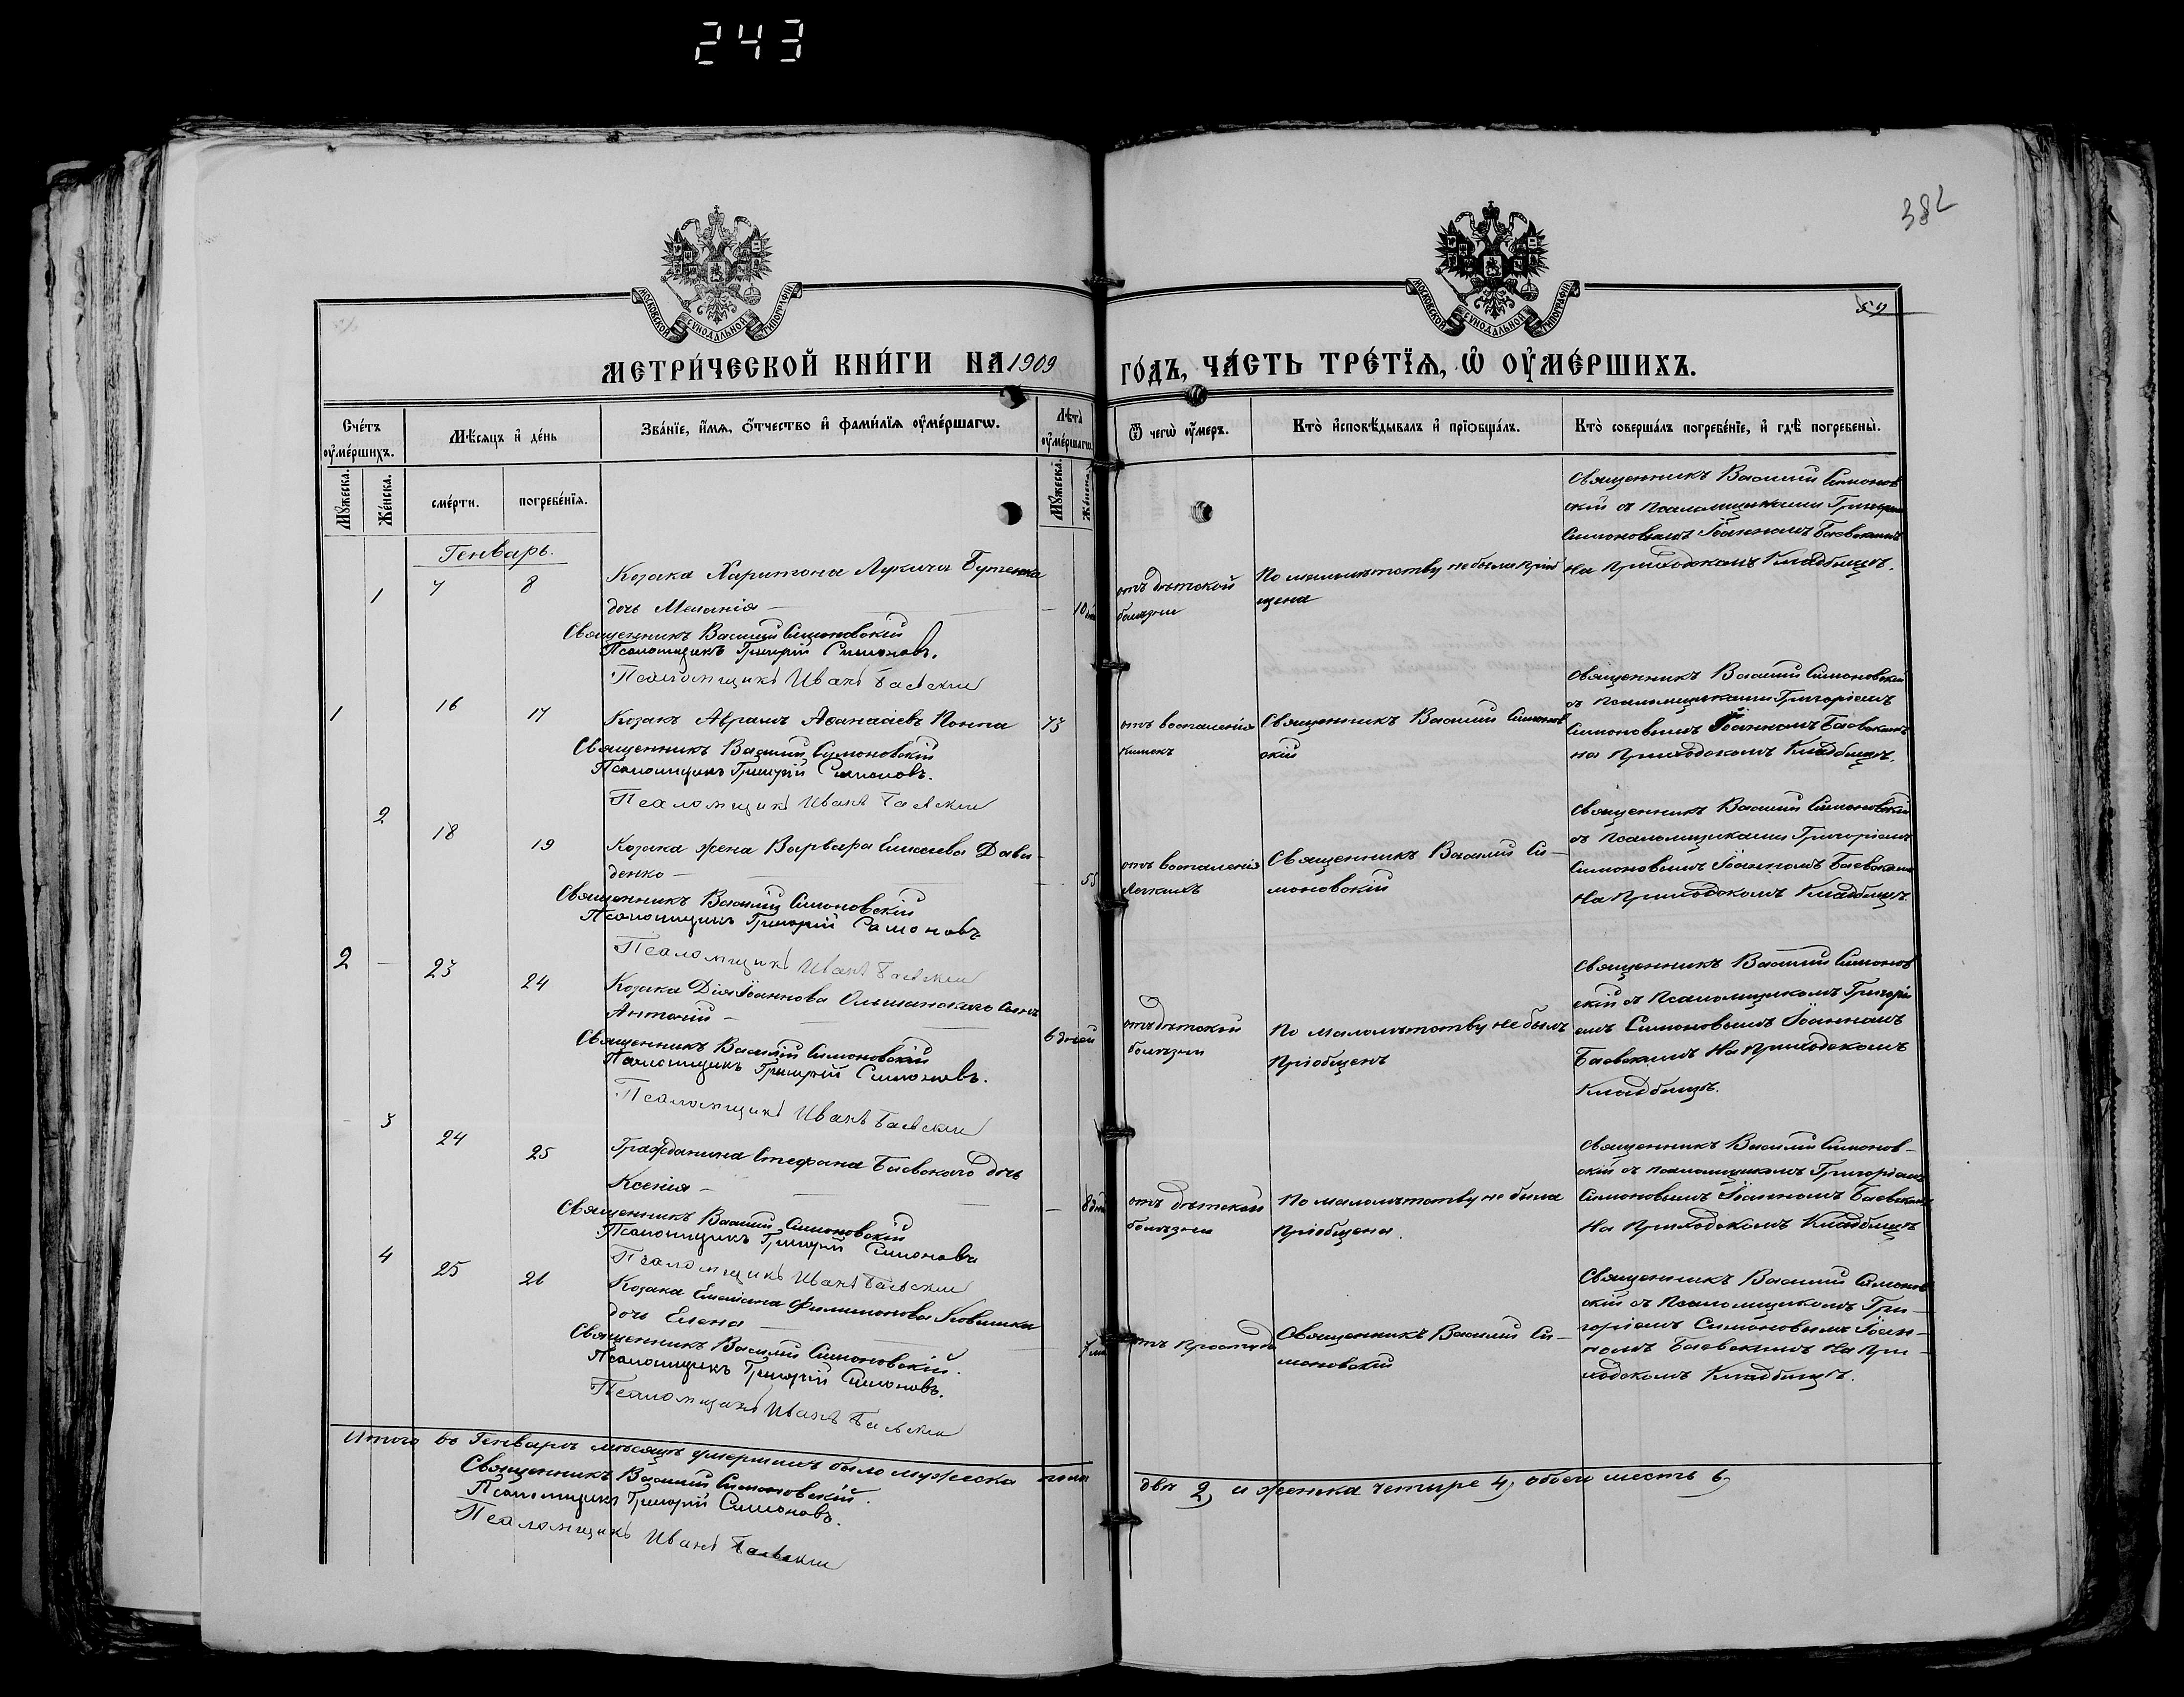 243
382
59
МОСКОВСКОЙ СѴНОДАЛЬНОЙ ТИПОГРАФІИ
МОСКОВСКОЙ СѴНОДАЛЬНОЙ ТИПОГРАФІИ
МЕТРИ́ЧЕСКОЙ КНИ́ГИ НА 1909 ГО́ДЪ, ЧА́СТЬ ТРЕ́ТЇѦ, Ѽ ОУ҆МЕ́РШИХЪ.
Сче́тъ оу҆ме́ршихъ.
Мѣ́сяцъ и҆ де́нь
Зва́нїе, и҆́мѧ, ѻ҆́тчество и҆ фами́лїѧ оу҆ме́ршагѡ.
Лѣ́та оу҆ме́ршагѡ.
Ѿ чегѡ̀ оу҆́меръ.
Кто̀ и҆сповѣ́дывалъ и҆ прїѡбща́лъ.
Кто̀ соверша́лъ погребе́нїе, и҆ гдѣ̀ погребены̀.
Мꙋ́жеска.
Же́нска.
сме́рти.
погребе́нїѧ.
Мꙋ́жеска.
Же́нска.
Генварь.
1 7 8
Козака Харитона Лукича Бутенка
дочь Меланія — 10 дн
Священникъ Василій Симоновскій
Псаломщикъ Григорій Симоновъ.
Псаломщикъ Иванъ Баевскій
отъ дѣтской
болѣзни
По малолѣтству не была пріоб
щена
Священникъ Василій Симонов
скій съ псаломщиками Григоріем
Симоновымъ Іоанномъ Баевскимъ
На Приходскомъ Кладбищѣ.
1 16 17
Козакъ Аврамъ Афанасіевъ Коппа 73
Священникъ Василій Симоновскій
Псаломщикъ Григорій Симоновъ.
Псаломщикъ Иванъ Баевскій
отъ воспаленія
кишекъ
Священникъ Василій Симонов
скій
Священникъ Василій Симоновскій
съ псаломщиками Григоріемъ
Симоновымъ Іоанномъ Баевскимъ
на Приходскомъ Кладбищѣ.
2 18 19
Козака жена Варвара Евсеева Дави-
денко — 55
Священникъ Василій Симоновскій
Псаломщикъ Григорій Симоновъ
Псаломщикъ Иванъ Баевскій
отъ воспаленія
легкихъ
Священникъ Василій Си-
моновскій
Священникъ Василій Симоновскій
съ псаломщиками Григоріемъ
Симоновымъ Іоанномъ Баевскимъ
На Приходскомъ Кладбищѣ.
2 — 23 24
Козака Діи Іоаннова Ольшанскаго сынъ
Антоній — 6 дней
Священникъ Василій Симоновскій
Псаломщикъ Григорій Симоновъ.
Псаломщикъ Иванъ Баевскій
отъ дѣтской
болѣзни
По малолѣтству не былъ
Пріобщенъ
Священникъ Василій Симонов
скій съ Псаломщикомъ Григорі
емъ Симоновымъ Іоанномъ
Баевскимъ На Приходскомъ
Кладбищѣ.
— 3 24 25
Гражданина Стефана Баевскаго дочь
Ксенія — 8 дней
Священникъ Василій Симоновскій
Псаломщикъ Григорій Симоновъ
Псаломщикъ Иванъ Баевскій
отъ дѣтской
болѣзни
По малолѣтству не была
Пріобщена.
Священникъ Василій Симонов-
скій съ псаломщикомъ Григоріемъ
Симоновымъ Іоанномъ Баевскимъ
На Приходскомъ Кладбищѣ
4 25 26
Козака Емеліана Филимонова
дочь Елена
Священникъ Василій Симоновскій.
Псаломщикъ Григорій Симоновъ.
Псаломщикъ Иванъ Баевскій
отъ простуды
Священникъ Василій Си-
моновскій
Священникъ Василій Симонов
скій съ Псаломщикомъ Гри-
горіемъ Симоновымъ Іоан-
номъ Баевскимъ На При-
ходскомъ Кладбищѣ.
Итого въ Генварѣ мѣсяцѣ умершихъ было мужеска пола два 2, и женска четыре 4, обоего шесть 6,
Священникъ Василій Симоновскій.
Псаломщикъ Григорій Симоновъ.
Псаломщикъ Иванъ Баевскій